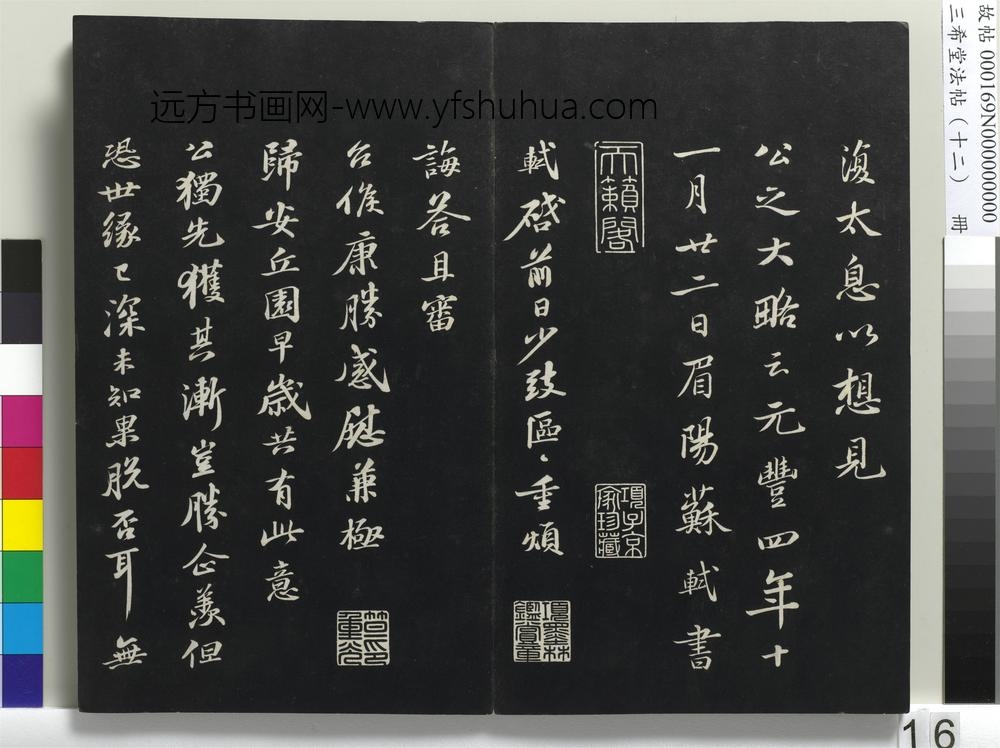 復太息以想見
公之大略云元豐四年十
一月廿二日眉陽蘇軾書
天籟閣
項子京
家珍藏
軾啓前日少致區〻重煩
項墨林
鑑賞章
誨答且審
台候康勝感慰兼極
笪印
重光
歸安丘園早歲共有此意
公獨先獲其漸豈勝企羨但
恐世緣已深未知果脫否耳無
远方书画网-www.yfshuhua.com
故帖 000169N000000000
三希堂法帖(十二) 冊
16